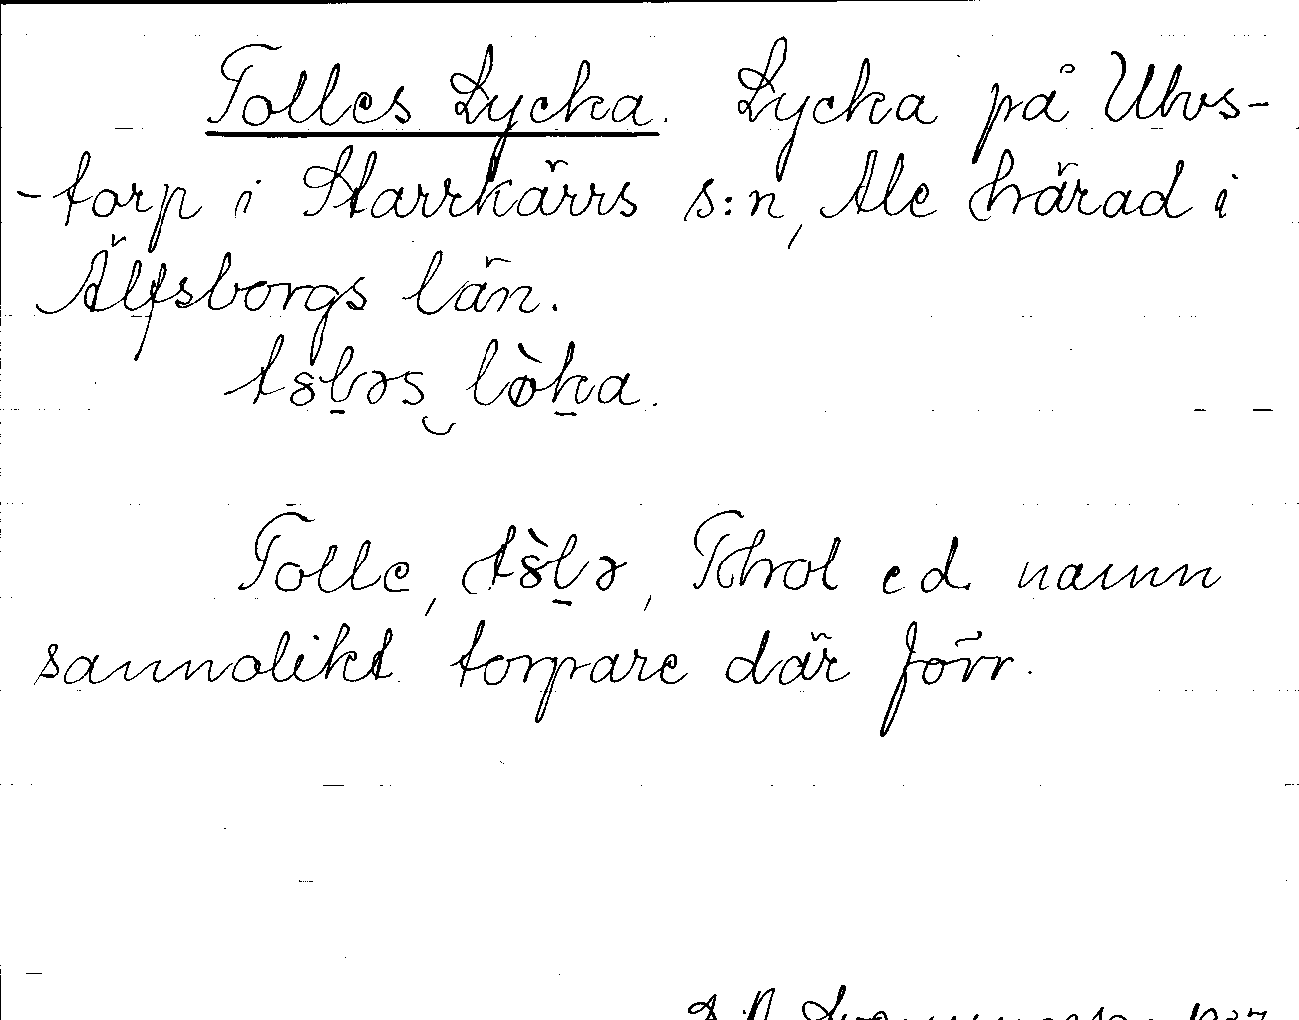 Tolles Lycka. Lycka på Ulvs-
-torp i Starrkärrs s:n, Ale härad i
Älfsborgs län.
Tolle, Thol e d. namn
sannolikt torpare där förr.